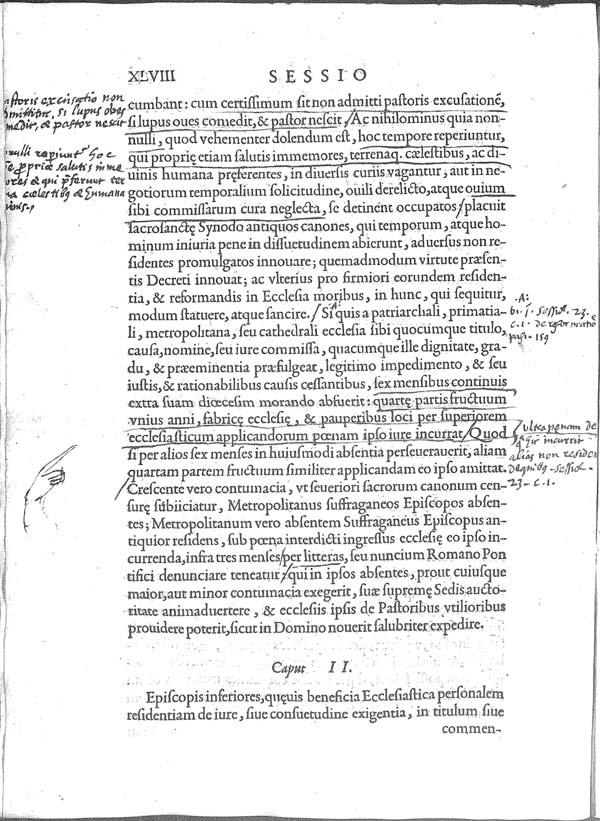 XLVIII SESSIO
cumbant: cum certissimum sit non admitti pastoris excusationẽ,
si lupus oues comedit, & pastor nescit: Ac nihilominus quia non-
nulli, quod vehementer dolendum est, hoc tempore reperiuntur,
qui proprię etiam salutis immemores, terrenaq. cælestibus, ac di-
uinis humana pręferentes, in diuersis curiis vagantur, aut in ne-
gotiorum temporalium solicitudine, ouili derelicto, atque ouium
sibi commissarum cura neglecta, se detinent occupatos, placuit
sacrosanctę Synodo antiquos canones, qui temporum, atque ho-
minum iniuria pene in dissuetudinem abierunt, aduersus non re-
sidentes promulgatos innouare; quemadmodum virtute præsen-
tis Decreti innouat; ac vlterius pro firmiori eorundem residen-
tia, & reformandis in Ecclesia moribus, in hunc, qui sequitur,
modum statuere, atque sancire. Si quis a patriarchali, primatia-
li, metropolitana, seu cathedrali ecclesia sibi quocumque titulo,
causa, nomine, seu iure commissa, quacumque ille dignitate, gra-
du, & præeminentia præfulgeat, legitimo impedimento, & seu
iustis, & rationabilibus causis cessantibus, sex mensibus continuis
extra suam diœcesim morando abfuerit: quartę partis fructuum
vnius anni, fabricę ecclesię, & pauperibus loci per superiorem
ecclesiasticum applicandorum pœnam ipso iure incurrat. Quod
si per alios sex menses in huiusmodi absentia perseuerauerit, aliam
quartam partem fructuum similiter applicandam eo ipso amittat.
Crescente vero contumacia, vt seueriori sacrorum canonum cen-
surę subiiciatur, Metropolitanus suffraganeos Episcopos absen-
tes; Metropolitanum vero absentem Suffraganeus Episcopus an-
tiquior residens, sub pœna interdicti ingressus ecclesię eo ipso in-
currenda, infra tres menses per litteras, seu nuncium Romano Pon
tifici denunciare teneatur, qui in ipsos absentes, prout cuiusque
maior, aut minor contumacia exegerit, suæ supremę Sedis aucto-
ritate animaduertere, & ecclesiis ipsis de Pastoribus vtilioribus
prouidere poterit, sicut in Domino nouerit salubriter expedire.
Caput II.
Episcopis inferiores, quęuis beneficia Ecclesiastica personalem
residentiam de iure, siue consuetudine exigentia, in titulum siue
commen-
astoris excusatio non
dmittitur, si lupus oues
medit, & pastor nescit
nulli reperiunt hoc
propriæ salutis imme
ores & qui pferunt ter
na cælestibq & humana
uinis.
.A.
sessio. 23.
c. 1. de reformatio
pag. 159
vltra penam de
qua incurrit
alias non residen
de quibq sessio.
23. c. 1.